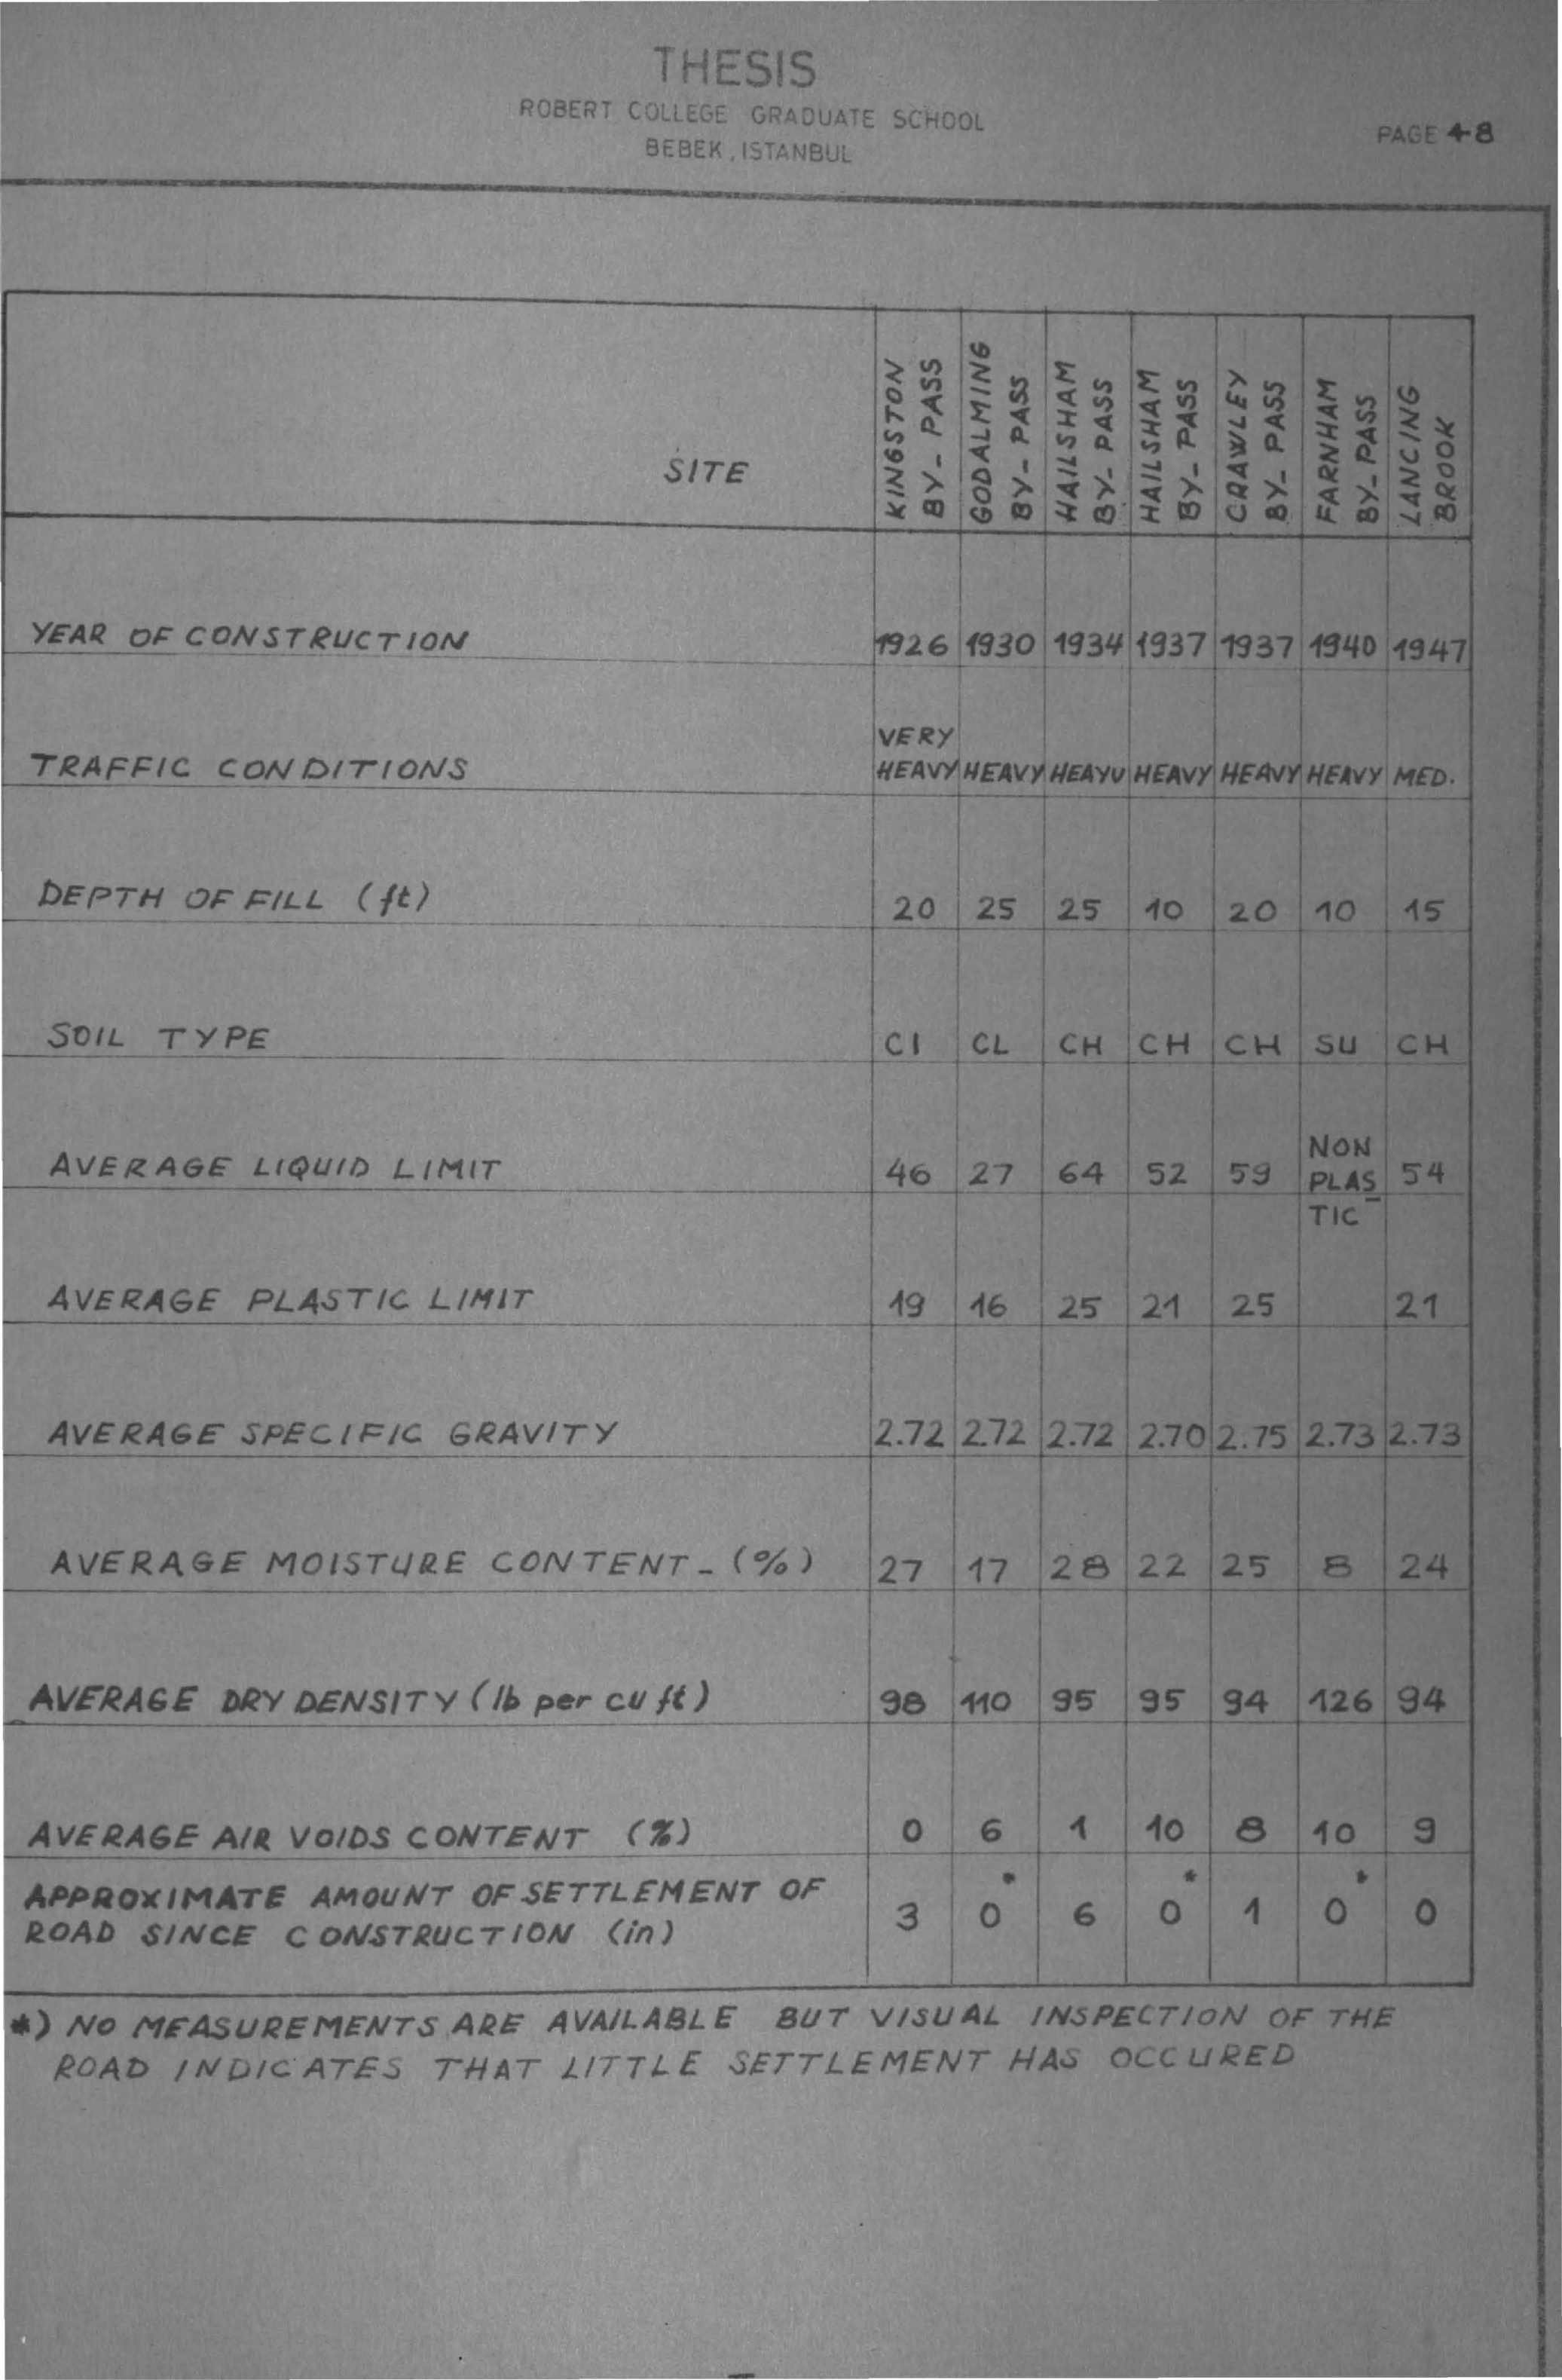 THESIS
ROBERT COLLEGE GRADUATE SCHOOL
BEBEK, ISTANBUL
PAGE 48
SITE KINGSTON BY-PASS GODALMING BY-PASS HAILSHAM BY-PASS HAILSHAM BY-PASS CRAWLEY BY-PASS FARNHAM BY-PASS LANCING BROOK
YEAR OF CONSTRUCTION 1926 1930 1934 1937 1937 1940 1947
TRAFFIC CONDITIONS VERY HEAVY HEAVY HEAYU HEAVY HEAVY HEAVY MED.
DEPTH OF FILL (ft) 20 25 25 10 20 10 15
SOIL TYPE CI CL CH CH CH SU CH
AVERAGE LIQUID LIMIT 46 27 64 52 59 NON PLAS-TIC 54
AVERAGE PLASTIC LIMIT 19 16 25 21 25 21
AVERAGE SPECIFIC GRAVITY 2.72 2.72 2.72 2.70 2.75 2.73 2.73
AVERAGE MOISTURE CONTENT - (%) 27 17 28 22 25 8 24
AVERAGE DRY DENSITY (lb per cu ft) 98 110 95 95 94 126 94
AVERAGE AIR VOIDS CONTENT (%) 0 6 1 10 8 10 9
APPROXIMATE AMOUNT OF SETTLEMENT OF
ROAD SINCE CONSTRUCTION (in) 3 0* 6 0* 1 0* 0
*) NO MEASUREMENTS ARE AVAILABLE BUT VISUAL INSPECTION OF THE
ROAD INDICATES THAT LITTLE SETTLEMENT HAS OCCURED